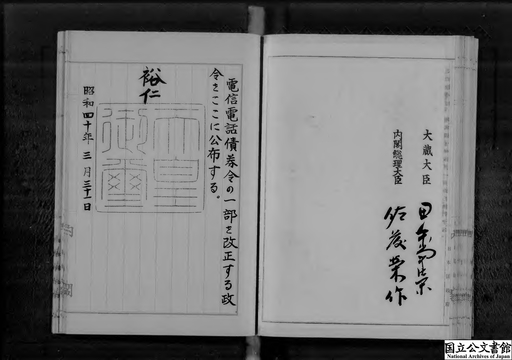 電信電話債券令の一部を改正する政
令をここに公布する。
裕仁
天皇
御璽
昭和四十年三月三十一日
大蔵大臣
田中角栄
内閣総理大臣
佐藤栄作
国立公文書館
National Archives of Japan